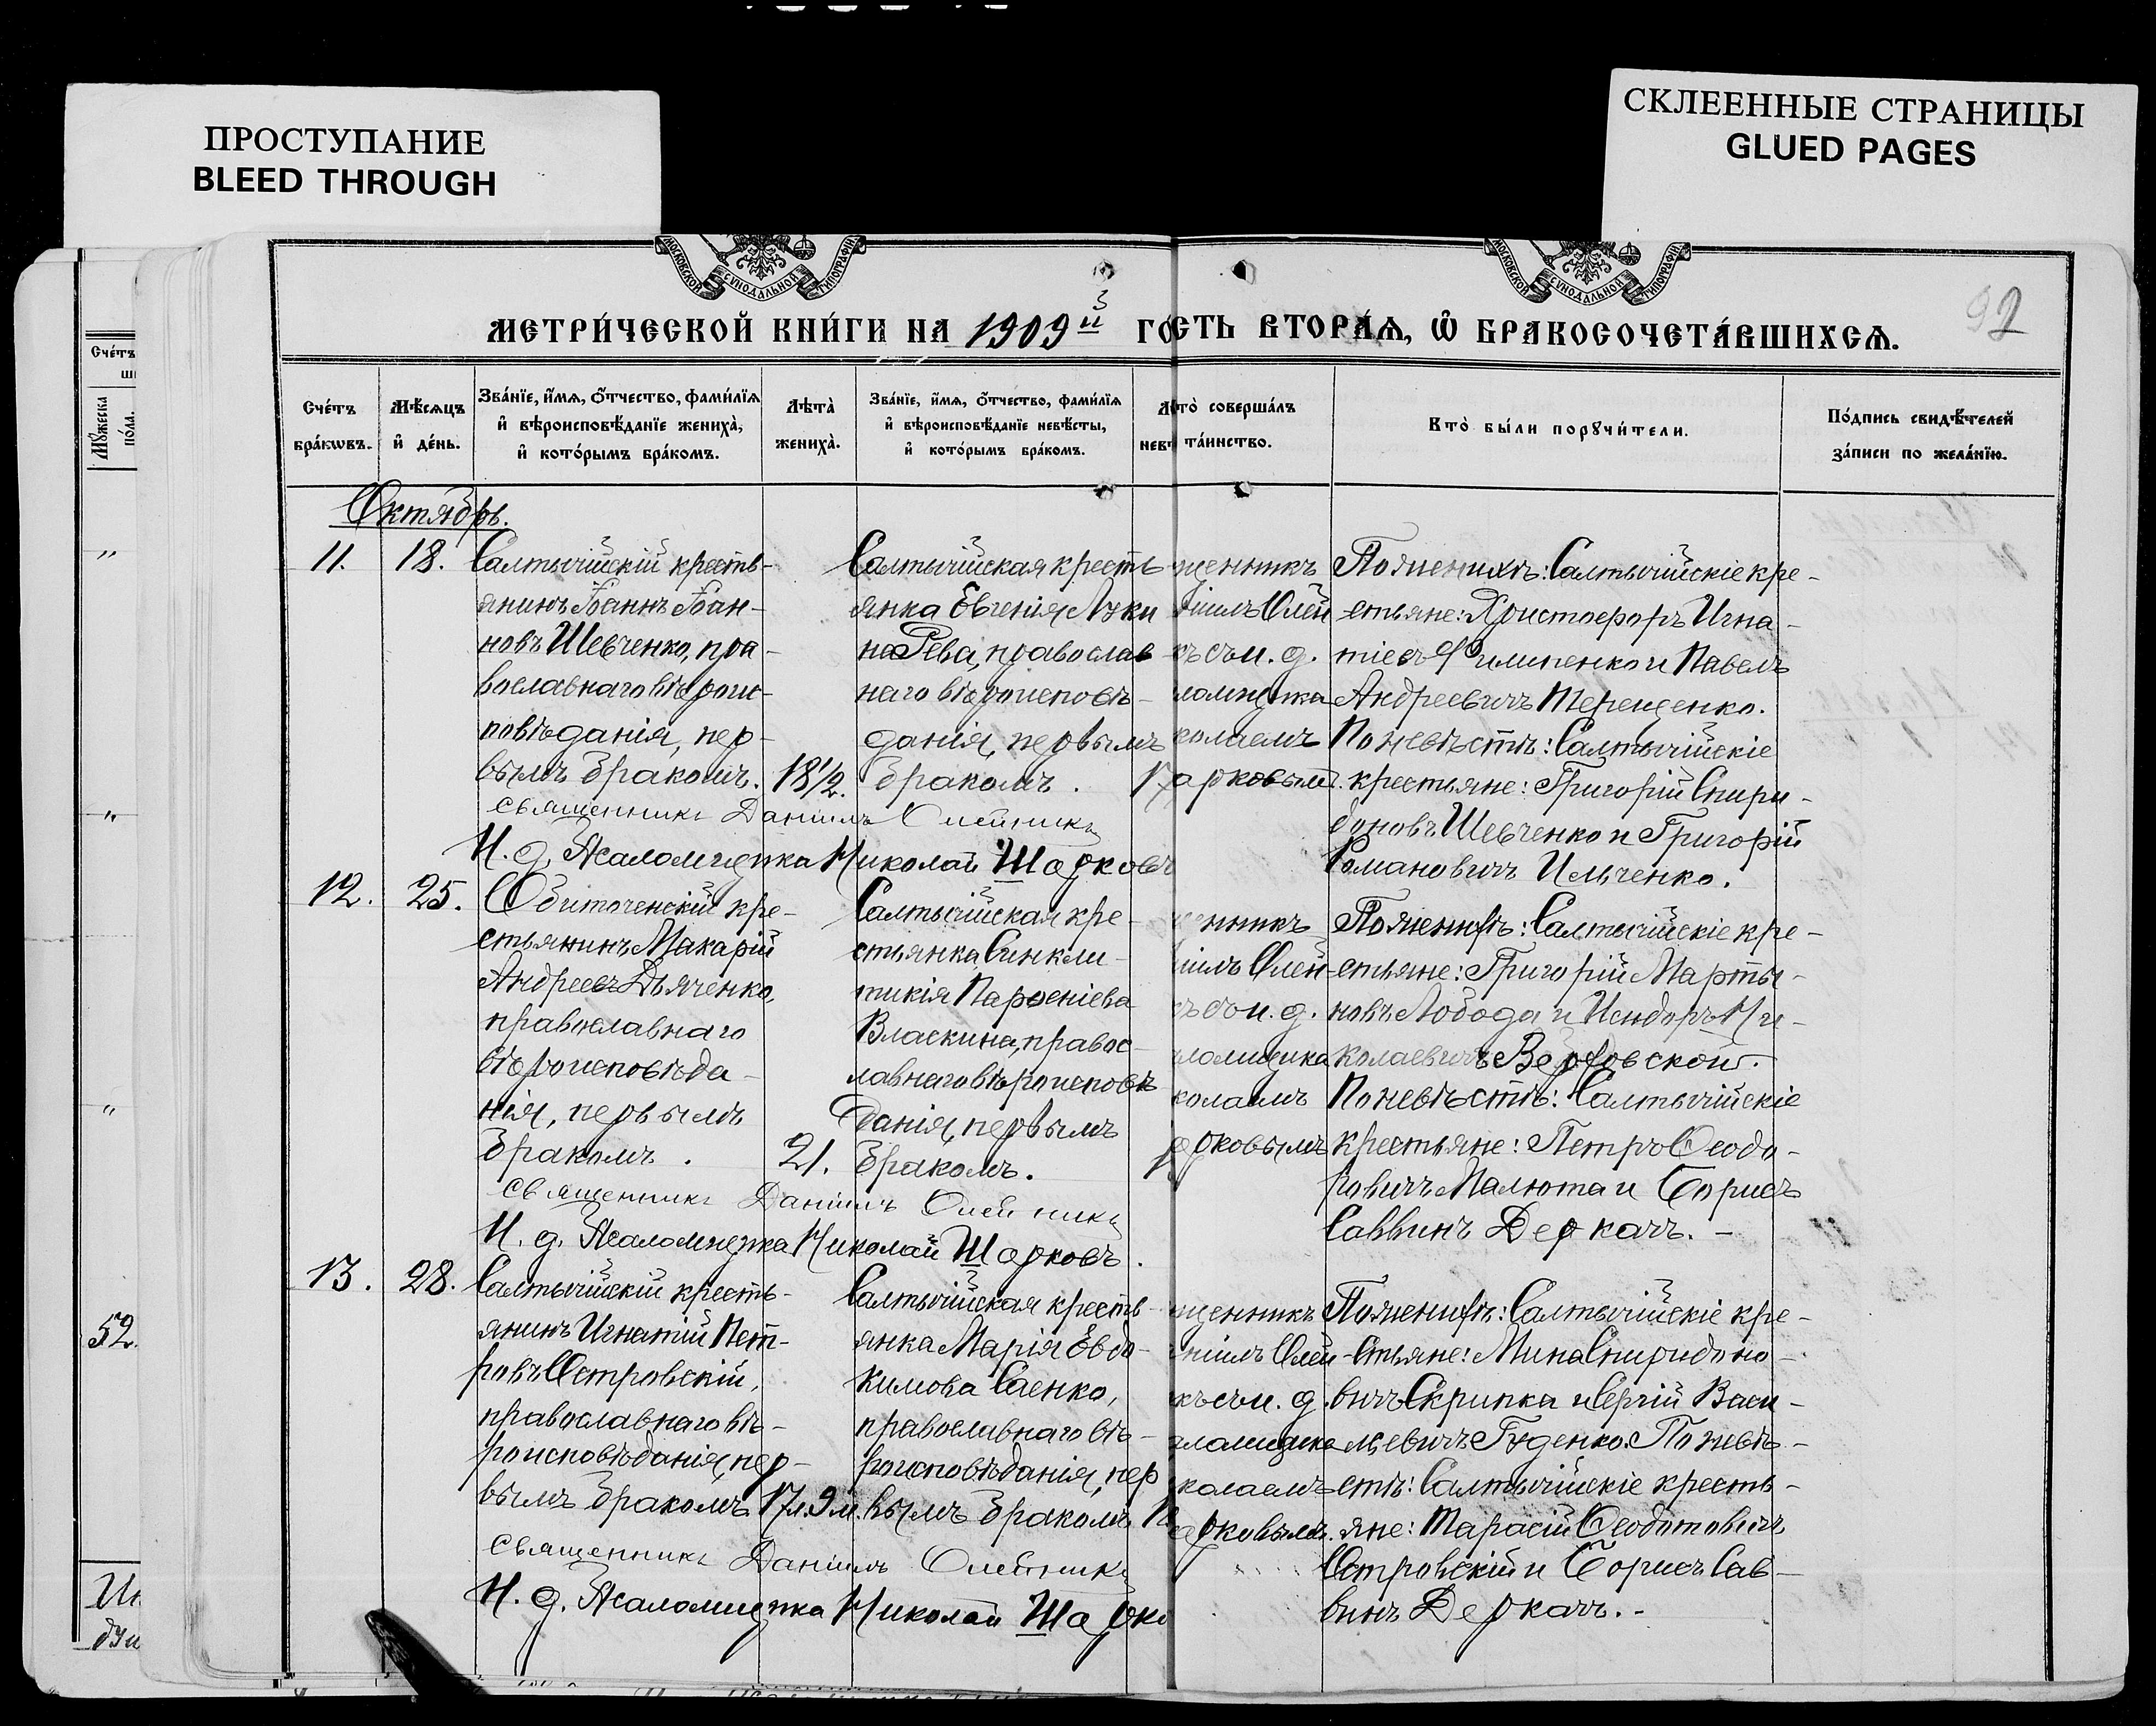 ПРОСТУПАНИЕ
BLEED THROUGH
СКЛЕЕННЫЕ СТРАНИЦЫ
GLUED PAGES
МОСКОВСКОЙ СѴНОДАЛЬНОЙ ТИПОГРАФІИ
МОСКОВСКОЙ СѴНОДАЛЬНОЙ ТИПОГРАФІИ
92
МЕТРИ́ЧЕСКОЙ КНИ́ГИ НА 1909й ГО
СТЬ ВТОРА́Ѧ, Ѡ҆ БРАКОСОЧЕТА́ВШИХСѦ.
Сче́тъ
бра́кѡвъ.
Мѣ́сяцъ
и҆ де́нь.
Зва́нїе, и҆́мѧ, ѻ҆́тчество, фами́лїѧ
и҆ вѣроисповѣ́данїе жениха̀,
и҆ кото́рымъ бра́комъ.
Лѣ́та̀
жениха̀.
Зва́нїе, и҆́мѧ, ѻ҆́тчество, фами́лїѧ
и҆ вѣроисповѣ́данїе невѣ́сты,
и҆ кото́рымъ бра́комъ.
Лѣ
невѣ
то̀ соверша́лъ
та́инство.
Кто̀ бы́ли порꙋчи́тели.
По́дпись свидѣ́телей
за́писи по жела́нїю.
Сче́тъ
Мꙋ́жеска
по́ла.
52.
Октябрь.
11.
18.
Салтычійскій кресть-
янинъ Іоаннъ Іоан-
новъ Шевченко, пра-
вославнаго вѣроис-
повѣданія, пер-
вымъ бракомъ.
18½.
Салтычійская кресть
янка Евгенія Луки
на Рева, православ
наго вѣроисповѣ-
данія, первымъ
бракомъ.
17
щенникъ
ніилъ Олей
къ съ и. д.
ломщика
колаемъ
арковымъ.
По женихѣ: Салтычійскіе кре-
стьяне: Христофоръ Игна-
тіевъ Филипенко и Павелъ
Андреевичъ Терещенко.
По невѣстѣ: Салтычійскіе
крестьяне: Григорій Спири-
доновъ Шевченко и Григорій
Романовичъ Ильченко.
Священникъ Даніилъ Олейникъ
И. д. Псаломщика Николай Шарковъ
12.
25.
Обиточенскій кре-
стьянинъ Макарій
Андреевъ Дьяченко,
православнаго
вѣроисповѣда-
нія, первымъ
бракомъ.
21.
Салтычійская кре-
стьянка Синкли-
тикія Парѳеніева
Власкина, правос-
лавнаго вѣроисповѣ
данія, первымъ
бракомъ.
енникъ
ніилъ Олей-
къ съ и. д.
ломщика
колаемъ
арковымъ
По женихѣ: Салтычійскіе кре-
стьяне: Григорій Марты-
новъ Лобода и Исидоръ Ни-
колаевичъ Вербовской.
По невѣстѣ: Салтычійскіе
крестьяне: Петръ Ѳеодо-
ровичъ Малюта и Борисъ
Саввинъ Деркачъ. -
Священникъ Даніилъ Олейникъ
И. д. Псаломщика Николай Шарковъ.
13.
28.
Салтычійскій кресть-
янинъ Игнатій Пет-
ровъ Островскій,
православнаго вѣ-
роисповѣданія, пер-
вымъ бракомъ.
17л. 9м.
Салтычійская кресть-
янка Марія Евдо-
кимова Саенко,
православнаго вѣ-
роисповѣданія, пер
вымъ бракомъ
щенникъ
ніилъ Олей-
къ съ и. д.
аломщика
колаемъ
арковымъ.
По женихѣ: Салтычійскіе кре-
стьяне: Мина Спиридоно-
вичъ Скрипка и Сергій Васи-
льевичъ Гуденко. По невѣ-
стѣ: Салтычійскіе кресть-
яне: Тарасій Ѳеодотовичъ
Островскій и Борисъ Сав-
винъ Деркачъ. -
Священникъ Даніилъ Олейникъ
И. д. Псаломщика Николай Шарко